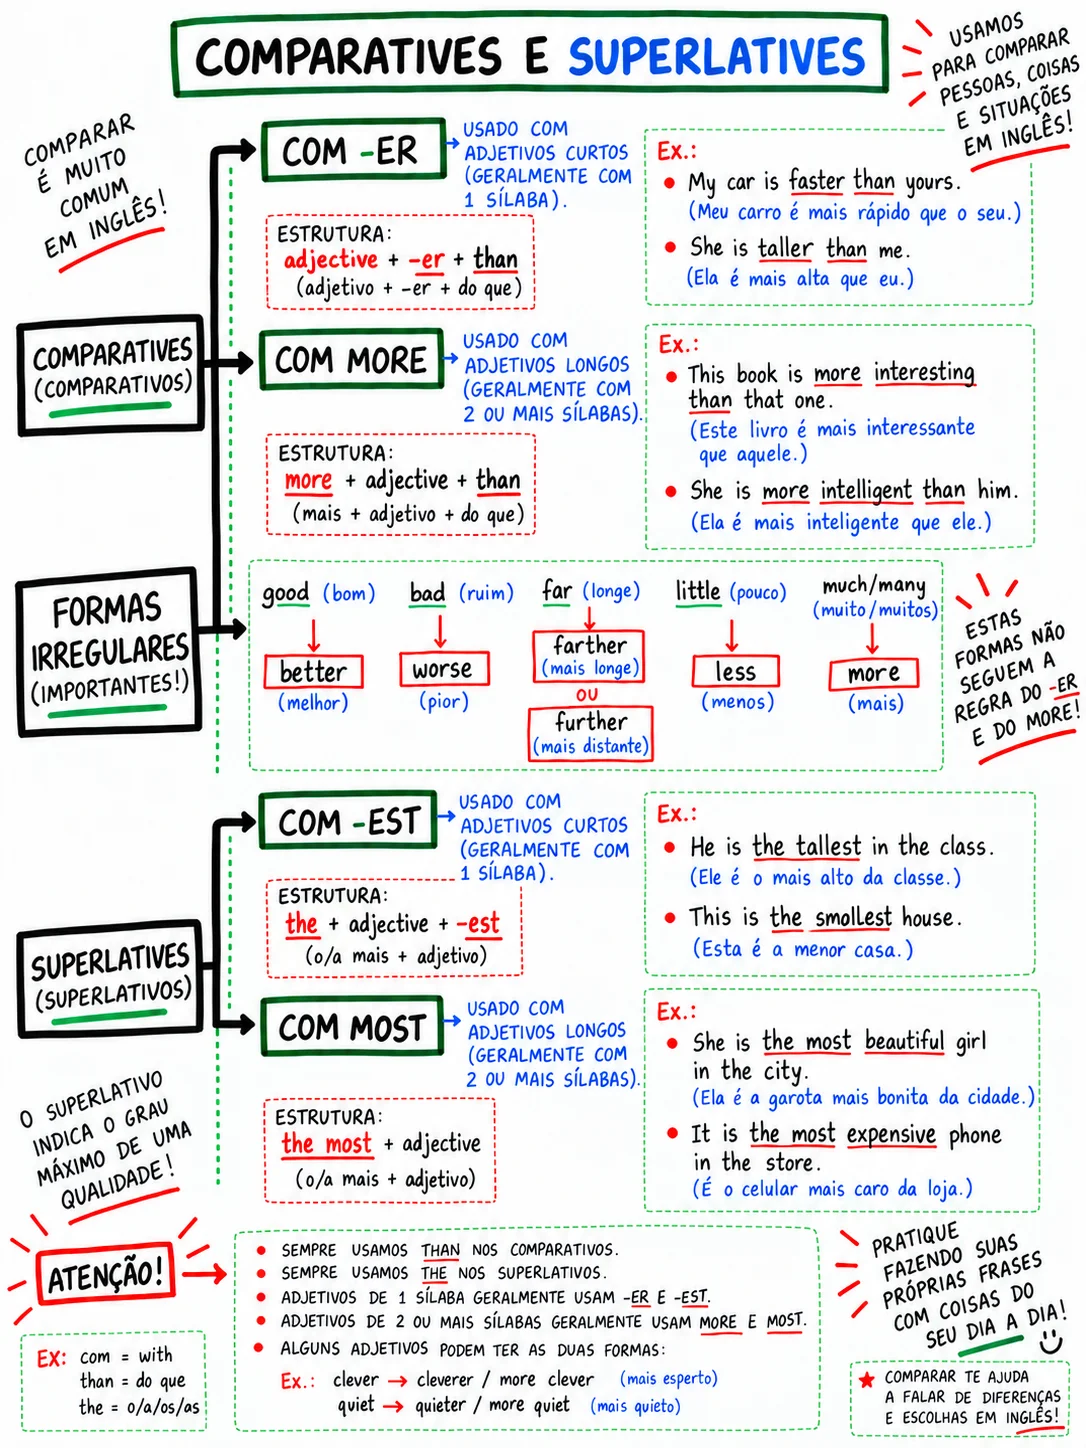 COMPARATIVES E SUPERLATIVES
USAMOS
PARA COMPARAR
PESSOAS, COISAS
E SITUAÇÕES
EM INGLÊS!
COMPARAR
É MUITO
COMUM
EM INGLÊS!
COMPARATIVES
(COMPARATIVOS)
COM -ER
USADO COM
ADJETIVOS CURTOS
(GERALMENTE COM
1 SÍLABA).
ESTRUTURA:
adjective + -er + than
(adjetivo + -er + do que)
Ex.:
My car is faster than yours.
(Meu carro é mais rápido que o seu.)
She is taller than me.
(Ela é mais alta que eu.)
COM MORE
USADO COM
ADJETIVOS LONGOS
(GERALMENTE COM
2 OU MAIS SÍLABAS).
ESTRUTURA:
more + adjective + than
(mais + adjetivo + do que)
Ex.:
This book is more interesting
than that one.
(Este livro é mais interessante
que aquele.)
She is more intelligent than him.
(Ela é mais inteligente que ele.)
FORMAS
IRREGULARES
(IMPORTANTES!)
good (bom)
better
(melhor)
bad (ruim)
worse
(pior)
far (longe)
farther
(mais longe)
ou
further
(mais distante)
little (pouco)
less
(menos)
much/many
(muito/muitos)
more
(mais)
ESTAS
FORMAS NÃO
SEGUEM A
REGRA DO -ER
E DO MORE!
SUPERLATIVES
(SUPERLATIVOS)
COM -EST
USADO COM
ADJETIVOS CURTOS
(GERALMENTE COM
1 SÍLABA).
ESTRUTURA:
the + adjective + -est
(o/a mais + adjetivo)
Ex.:
He is the tallest in the class.
(Ele é o mais alto da classe.)
This is the smollest house.
(Esta é a menor casa.)
COM MOST
USADO COM
ADJETIVOS LONGOS
(GERALMENTE COM
2 OU MAIS SÍLABAS).
ESTRUTURA:
the most + adjective
(o/a mais + adjetivo)
Ex.:
She is the most beautiful girl
in the city.
(Ela é a garota mais bonita da cidade.)
It is the most expensive phone
in the store.
(É o celular mais caro da loja.)
O SUPERLATIVO
INDICA O GRAU
MÁXIMO DE UMA
QUALIDADE!
ATENÇÃO!
SEMPRE USAMOS THAN NOS COMPARATIVOS.
SEMPRE USAMOS THE NOS SUPERLATIVOS.
ADJETIVOS DE 1 SÍLABA GERALMENTE USAM -ER E -EST.
ADJETIVOS DE 2 OU MAIS SÍLABAS GERALMENTE USAM MORE E MOST.
ALGUNS ADJETIVOS PODEM TER AS DUAS FORMAS:
Ex.: clever → cleverer / more clever (mais esperto)
quiet → quieter / more quiet (mais quieto)
Ex: com = with
than = do que
the = o/a/os/as
PRATIQUE
FAZENDO SUAS
PRÓPRIAS FRASES
COM COISAS DO
SEU DIA A DIA!
★ COMPARAR TE AJUDA
A FALAR DE DIFERENÇAS
E ESCOLHAS EM INGLÊS!